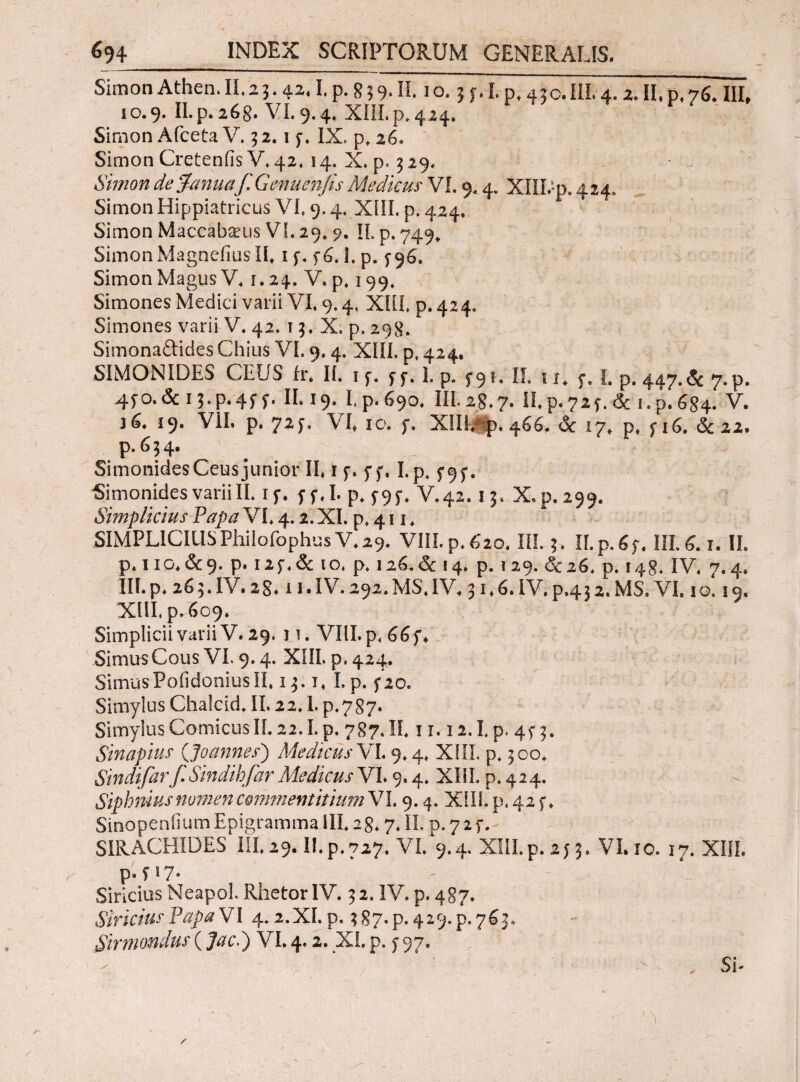 694 INDEX SCRIPTORUM GENERALIS.
Simon Athen. II. 23. 42. I. p. 839. II. 10. 35. I. p. 430. III. 4. 2. II. p. 76. III.
10. 9. II. p. 268. VI. 9. 4. XIII. p. 424.
Simon Asceta V. 32. 15. IX. p. 26.
Simon Cretensis V. 42. 14. X. p. 329.
Simon de Janua s. Genuensis Medicus VI. 9. 4. XIII. p. 424.
Simon Hippiatricus VI. 9. 4. XIII. p. 424.
Simon Maccabæus VI. 29. 9. II. p. 749.
Simon Magnesius II. 15. 56. I. p. 596.
Simon Magus V. 1. 24. V. p. 199.
Simones Medici varii VI. 9. 4. XIII. p. 424.
Simones varii V. 42. 13. X. p. 298.
Simonactides Chius VI. 9. 4. XIII. p. 424.
SIMONIDES CEUS fr. II. 15. 55. I. p. 591. II. 11. 5. I. p. 447. & 7. p.
450. & 13. p. 455. II. 19. I. p. 690. III. 28. 7. II. p. 725. & 1. p. 684. V.
16. 19. VII. p. 725. VI. 10. 5. XIII. p. 466. & 17. p. 516. & 22.
p. 634.
Simonides Ceus junior II. 15. 55. I. p. 595.
Simonides varii II. 15. 55. I. p. 595. V. 42. 13. X. p. 299.
Simplicius Papa VI. 4. 2. XI. p. 411.
SIMPLICIUS Philosophus V. 29. VIII. p. 620. III. 3. II. p. 65. III. 6. 1. II.
p. 110. & 9. p. 125. & 10. p. 126. & 14. p. 129. & 26. p. 148. IV. 7. 4.
III. p. 263. IV. 28. 11. IV. 292. MS. IV. 31. 6. IV. p. 432. MS. VI. 10. 19.
XIII. p. 609.
Simplicii varii V. 29. 11. VIII. p. 665.
Simus Cous VI. 9. 4. XIII. p. 424.
Simus Posidonius II. 13. 1. I. p. 520.
Simylus Chalcid. II. 22. I. p. 787.
Simylus Comicus II. 22. I. p. 787. II. 11. 12. I. p. 453.
Sinapius (Joannes) Medicus VI. 9. 4. XIII. p. 300.
Sindifar s. Sindihfar Medicus VI. 9. 4. XIII. p. 424.
Siphnius nomen commentitium VI. 9. 4. XIII. p. 425.
Sinopensium Epigramma III. 28. 7. II. p. 725.
SIRACHIDES III. 29. II. p. 727. VI. 9. 4. XIII. p. 253. VI. 10. 17. XIII.
p. 517.
Siricius Neapol. Rhetor IV. 32. IV. p. 487.
Siricius Papa VI 4. 2. XI. p. 387. p. 429. p. 763.
Sirmondus (Jac.) VI. 4. 2. XI. p. 597.
Si-